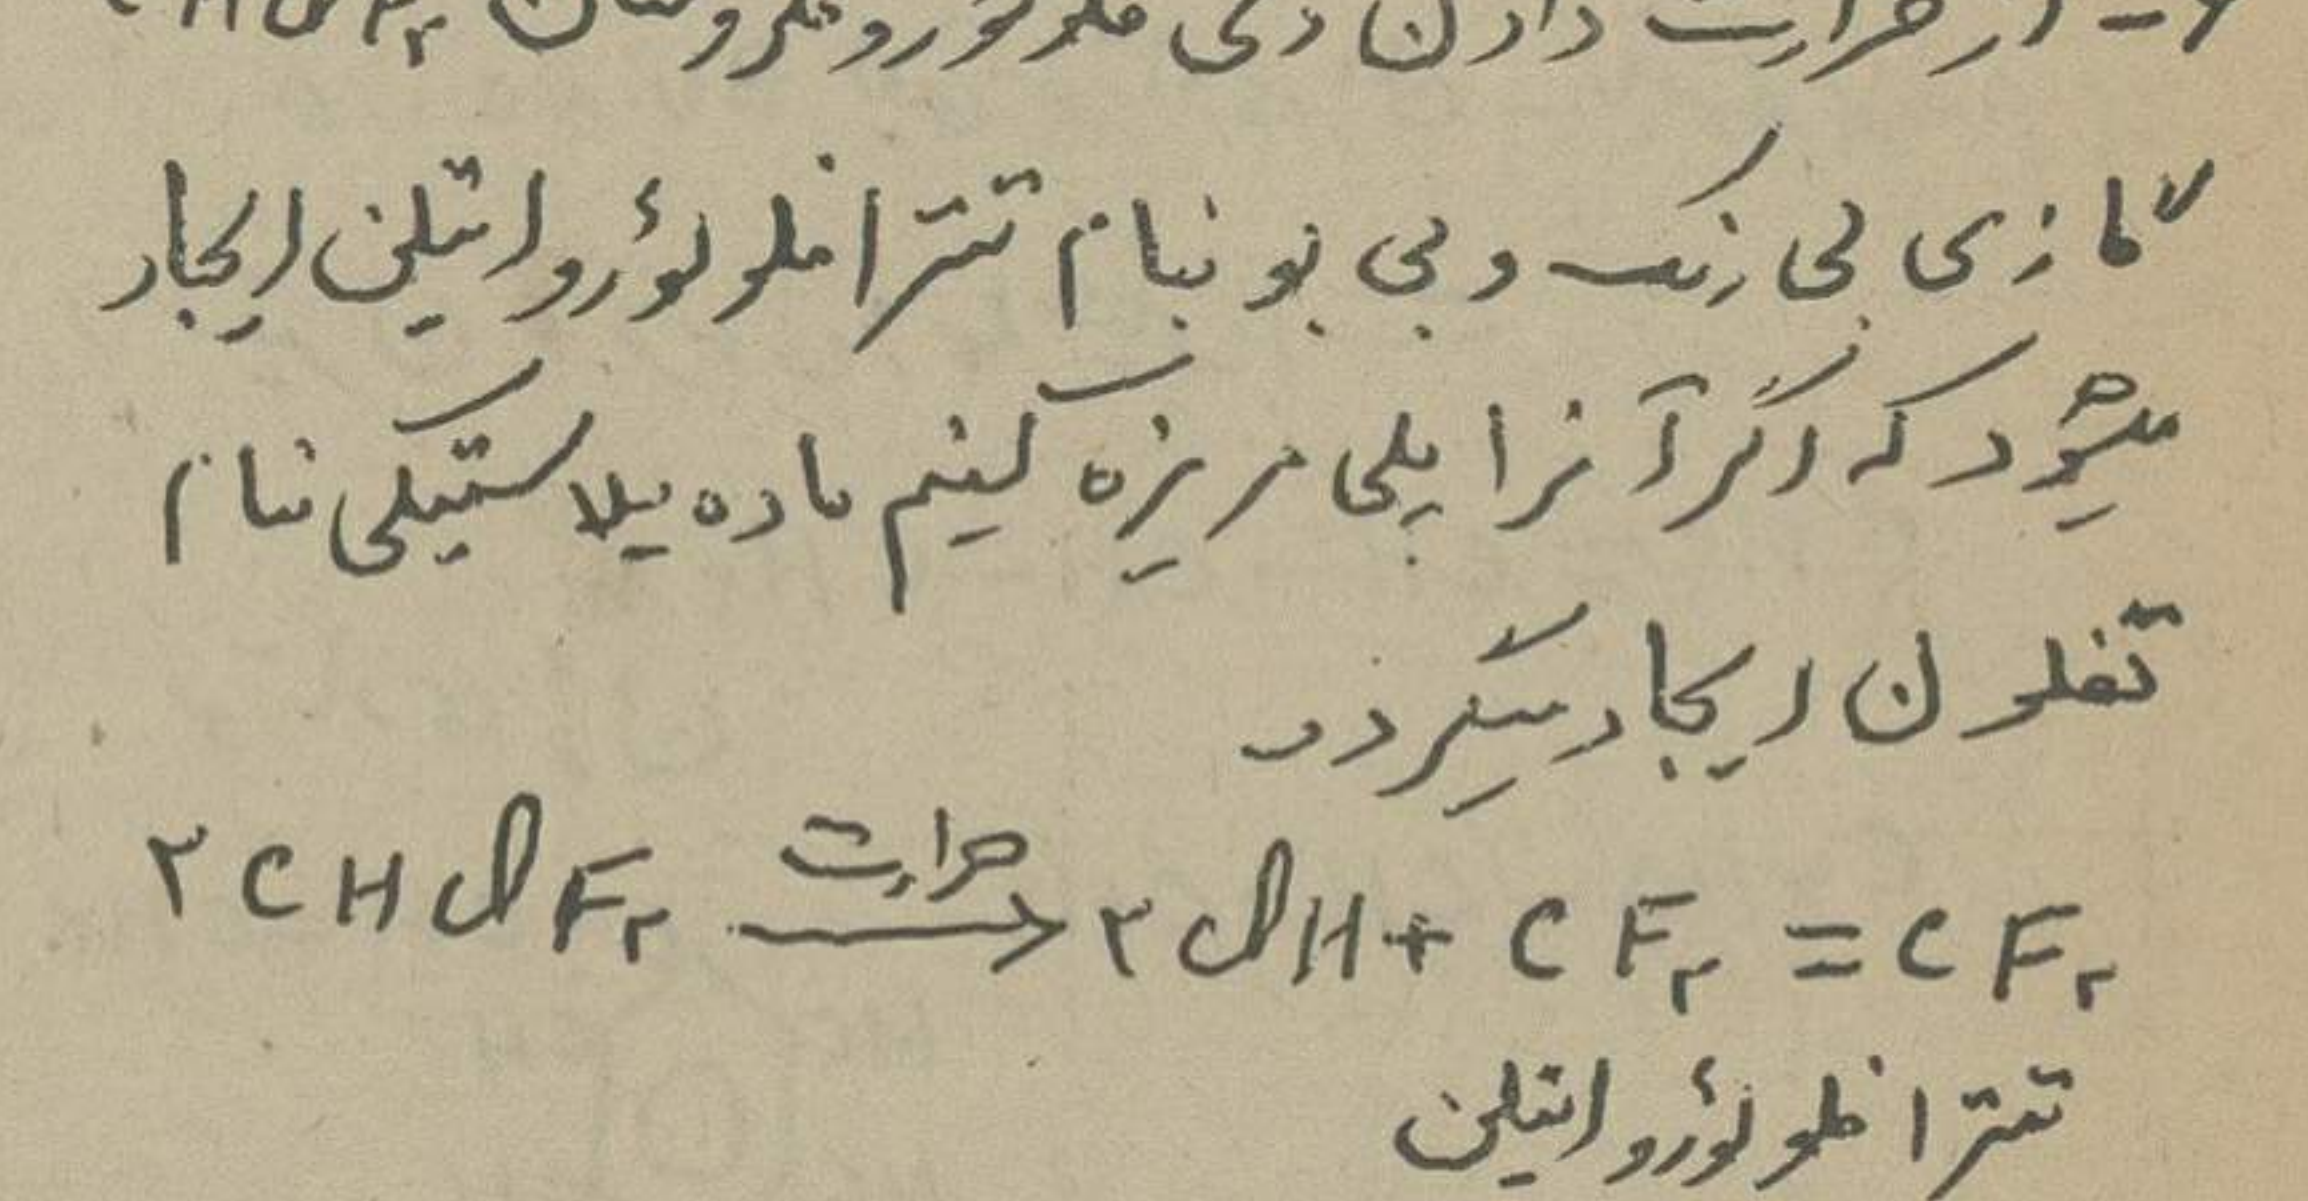 از حرارت دادن دی فلوئوروکلرومتان
گازی بی رنگ و بی بو بنام تترا فلوئورواتیلن ایجاد
میشود که اگر آنرا پلی مریزه کنیم ماده پلاستیکی بنام
تفلون ایجاد میگردد
۲CHClF₂ حرارت → ۲ClH + CF₂ = CF₂
تترا فلوئورواتیلن